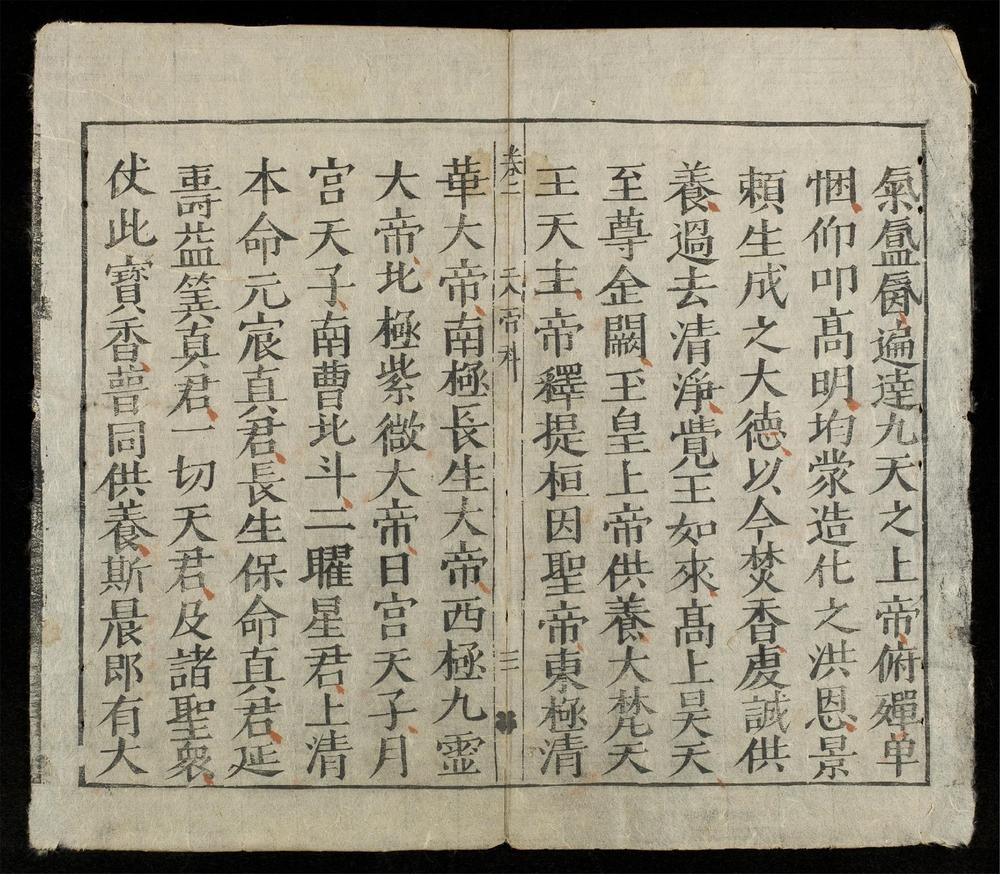 氣遍達九天之上帝俯殫单
悃仰叩髙明均蒙造化之洪恩景
賴生成之大德以今焚香虔誠供
養過去清淨覺王如來髙上昊天
至尊企闕玉皇上帝供養大梵天
王天主帝釋提桓因聖帝東極清
卷二 天帝科 三
華大帝南極長生大帝西極九霊
大帝北極紫微大帝日宮天子月
宮天子南曹北斗二曜星君上清
本命元宸真君長生保命真君延
壽益筭真君一切天君及諸聖衆
仗此寶香普同供養斯晨即有大